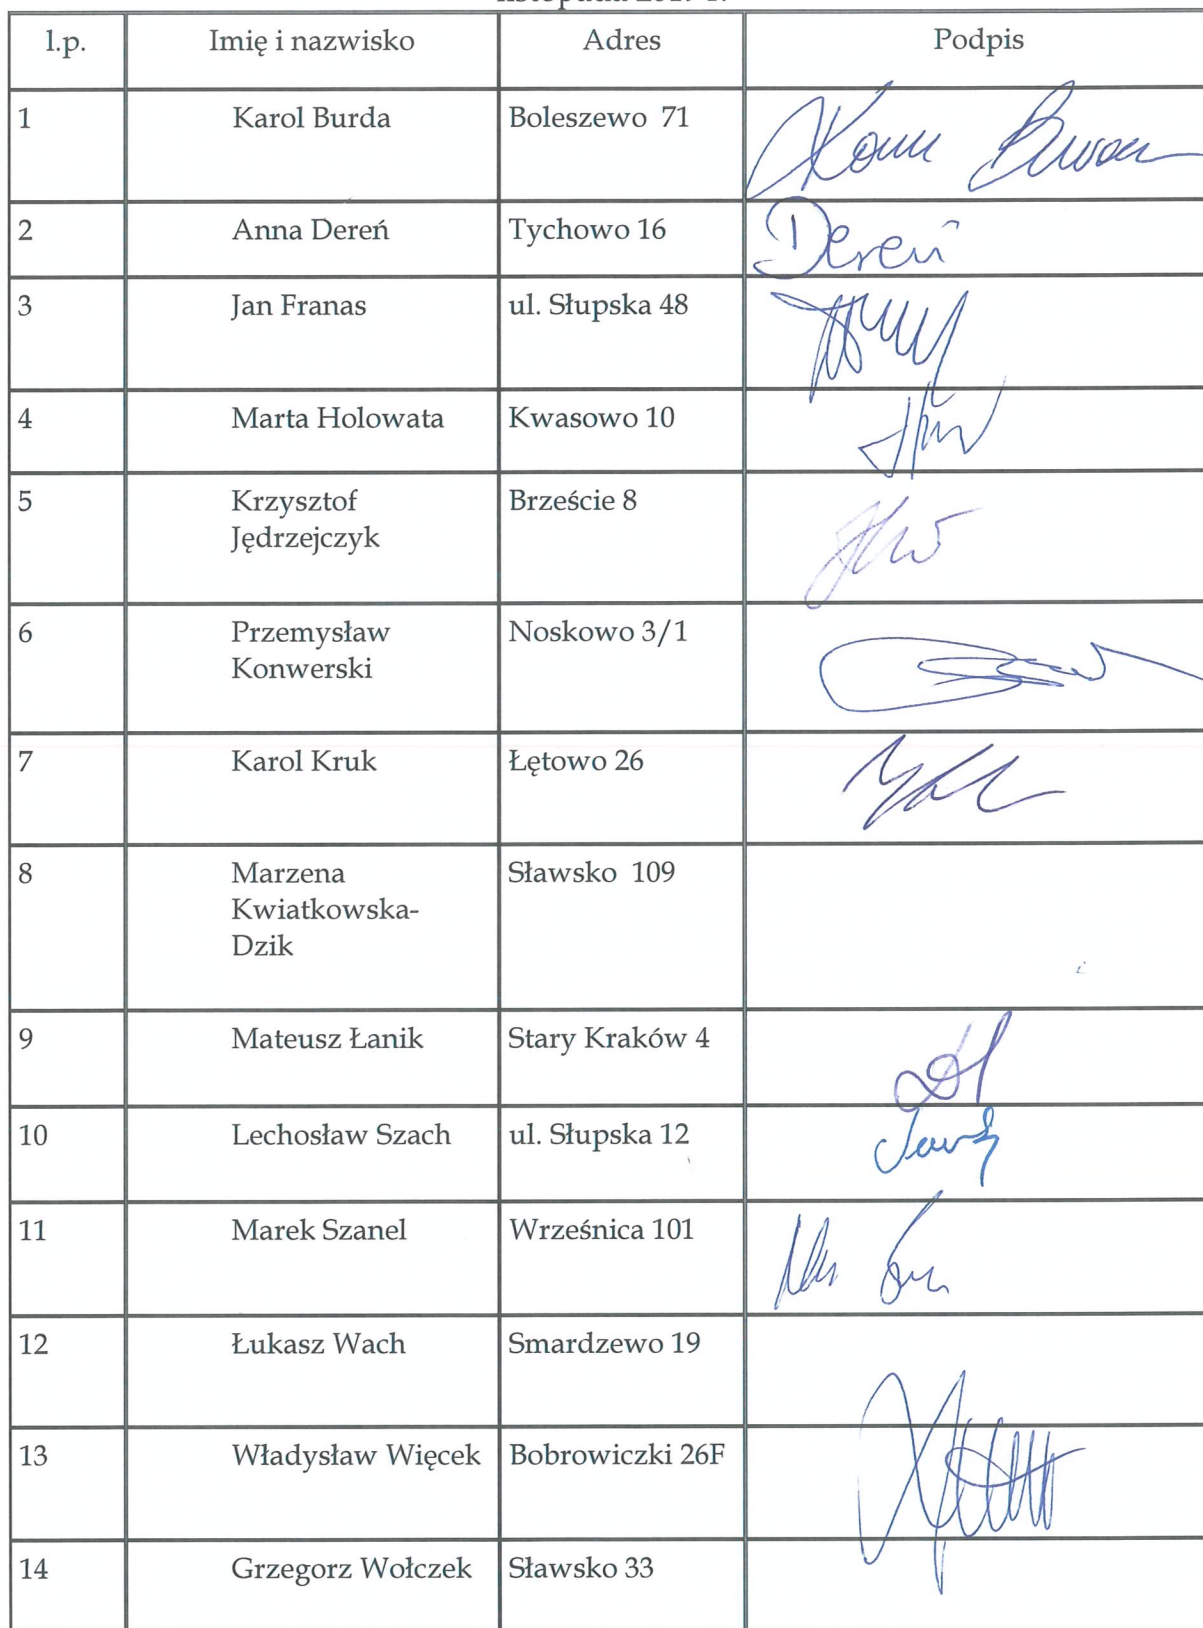 l.p. Imię i nazwisko Adres Podpis
1 Karol Burda Boleszewo 71
2 Anna Dereń Tychowo 16 Dereń
3 Jan Franas ul. Słupska 48
4 Marta Holowata Kwasowo 10
5 Krzysztof Brzeście 8
Jędrzejczyk
6 Przemysław Noskowo 3/1
Konwerski
7 Karol Kruk Łętowo 26
8 Marzena Sławsko 109
Kwiatkowska-
Dzik
9 Mateusz Łanik Stary Kraków 4
10 Lechosław Szach ul. Słupska 12
11 Marek Szanel Wrześnica 101
12 Łukasz Wach Smardzewo 19
13 Władysław Więcek Bobrowiczki 26F
14 Grzegorz Wołczek Sławsko 33